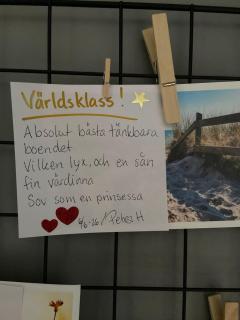 Världsklass!
Absolut bästa tänkbara
boendet
Vilken lyx, och en sån
fin värdinna
Sov som en prinsessa
4/6-26 / Rebec H